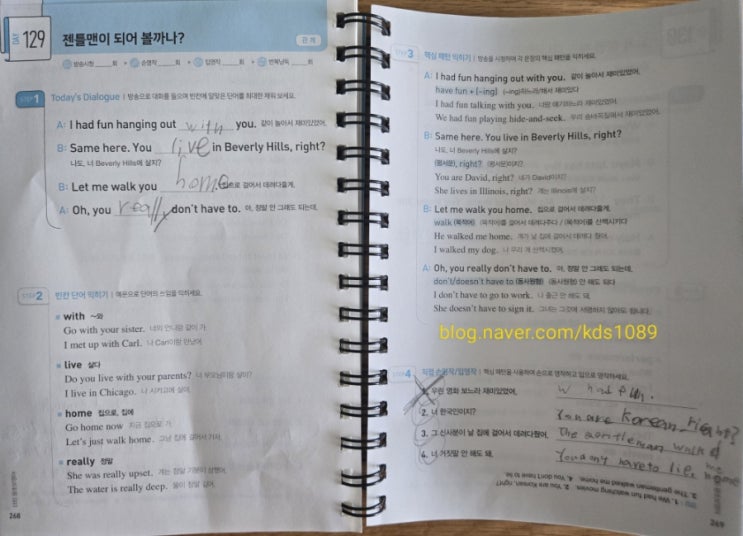 DAY 129
젠틀맨이 되어 볼까나?
관계
방송시청 ___회 손영작 ___회 입영작 ___회 반복낭독 ___회
STEP 1 Today's Dialogue | 방송으로 대화를 들으며 빈칸에 알맞은 단어를 최대한 채워 보세요.
A: I had fun hanging out with you. 같이 놀아서 재미있었어.
B: Same here. You live in Beverly Hills, right?
나도. 너 Beverly Hills에 살지?
B: Let me walk you home. 집으로 걸어서 데려다줄게.
A: Oh, you really don't have to. 아, 정말 안 그래도 되는데.
STEP 2 빈칸 단어 익히기 | 예문으로 단어의 쓰임을 익히세요.
with ~와
Go with your sister. 너의 언니랑 같이 가.
I met up with Carl. 나 Carl이랑 만났어.
live 살다
Do you live with your parents? 너 부모님이랑 살아?
I live in Chicago. 나 시카고에 살아.
home 집으로, 집에
Go home now. 지금 집으로 가.
Let's just walk home. 그냥 집에 걸어서 가자.
really 정말
She was really upset. 걔는 정말 기분이 상했어.
The water is really deep. 물이 정말 깊어.
268
STEP 3 핵심 패턴 익히기 | 방송을 시청하며 각 문장의 핵심 패턴을 익히세요.
A: I had fun hanging out with you. 같이 놀아서 재미있었어.
have fun + [~ing] [~ing]하느라/해서 재미있다
I had fun talking with you. 너랑 얘기하느라 재미있었어.
We had fun playing hide-and-seek. 우리 숨바꼭질해서 재미있었어.
B: Same here. You live in Beverly Hills, right?
나도. 너 Beverly Hills에 살지?
(평서문), right? (평서문)이지?
You are David, right? 네가 David이지?
She lives in Illinois, right? 걔는 Illinois에 살지?
B: Let me walk you home. 집으로 걸어서 데려다줄게.
walk (목적어) (목적어)를 걸어서 데려다주다 / (목적어)를 산책시키다
He walked me home. 걔가 날 집에 걸어서 데려다 줬어.
I walked my dog. 나 우리 개 산책시켰어.
A: Oh, you really don't have to. 아, 정말 안 그래도 되는데.
don't/doesn't have to (동사원형) (동사원형) 안 해도 되다
I don't have to go to work. 나 출근 안 해도 돼.
She doesn't have to sign it. 그녀는 그것에 서명하지 않아도 됩니다.
blog.naver.com/kds1089
STEP 4 직접 손영작/입영작 | 핵심 패턴을 사용하여 손으로 영작하고 입으로 영작하세요.
1. 우린 영화 보느라 재미있었어.
W had fun.
2. 너 한국인이지? You are Korean, right?
3. 그 신사분이 날 집에 걸어서 데려다줬어. The gentleman walked me home
4. 너 거짓말 안 해도 돼. You don't have to lie.
1. We had fun watching movies. 2. You are Korean, right?
3. The gentleman walked me home. 4. You don't have to lie.
269